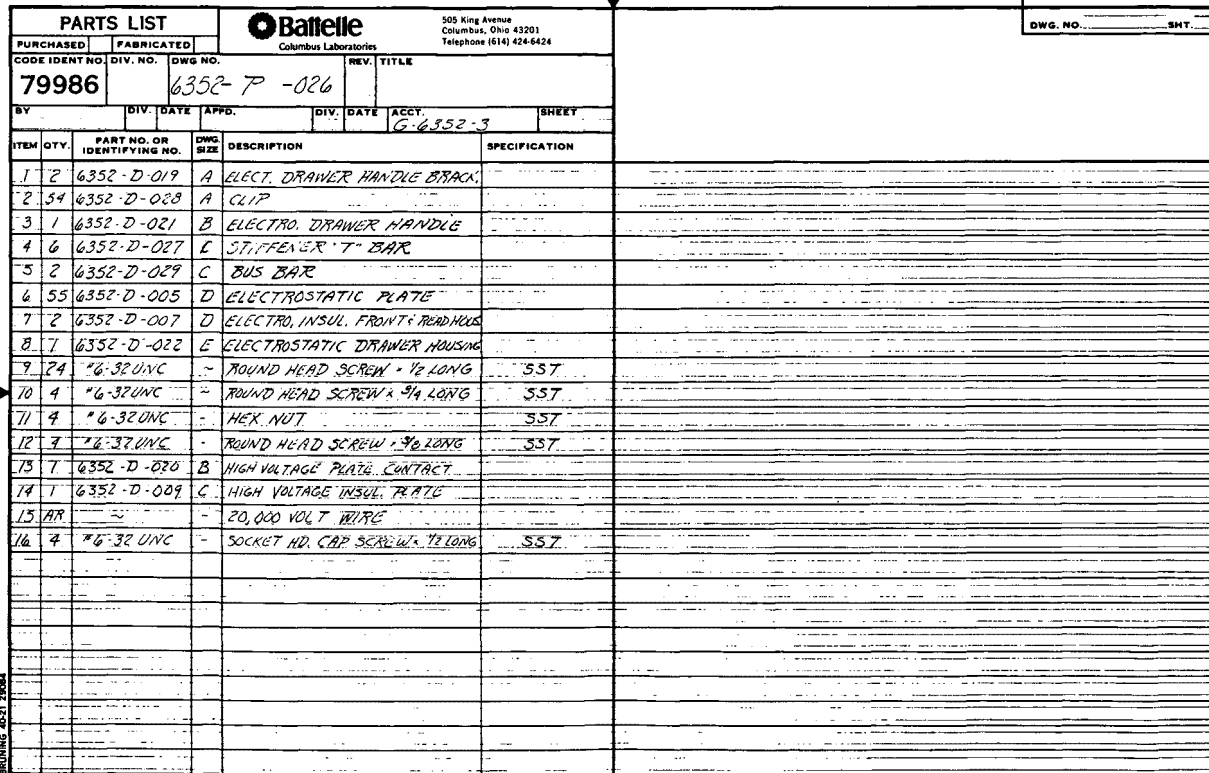 PARTS LIST
PURCHASED FABRICATED
Battelle
Columbus Laboratories
505 King Avenue
Columbus, Ohio 43201
Telephone (614) 424-6424
DWG. NO. SHT.
CODE IDENT NO. DIV. NO. DWG NO. REV. TITLE
79986 6352-P-026
BY DIV. DATE APPD. DIV. DATE ACCT. SHEET
G-6352-3
ITEM QTY. PART NO. OR IDENTIFYING NO. DWG. SIZE DESCRIPTION SPECIFICATION
1 2 6352-D-019 A ELECT. DRAWER HANDLE BRACK.
2 54 6352-D-028 A CLIP
3 1 6352-D-021 B ELECTRO. DRAWER HANDLE
4 6 6352-D-027 C STIFFENER "T" BAR
5 2 6352-D-029 C BUS BAR
6 55 6352-D-005 D ELECTROSTATIC PLATE
7 2 6352-D-007 D ELECTRO. INSUL. FRONT & READ HOUS
8 1 6352-D-022 E ELECTROSTATIC DRAWER HOUSING
9 24 #6-32 UNC ~ ROUND HEAD SCREW x 1/2 LONG SST
10 4 #6-32 UNC ~ ROUND HEAD SCREW x 3/4 LONG SST
11 4 #6-32 UNC - HEX NUT SST
12 4 #6-32 UNC - ROUND HEAD SCREW x 3/8 LONG SST
13 1 6352-D-020 B HIGH VOLTAGE PLATE CONTACT
14 1 6352-D-009 C HIGH VOLTAGE INSUL. PLATE
15 AR ~ - 20,000 VOLT WIRE
16 4 #6-32 UNC - SOCKET HD. CAP SCREW x 1/2 LONG SST
BRUNING 40-21 29084